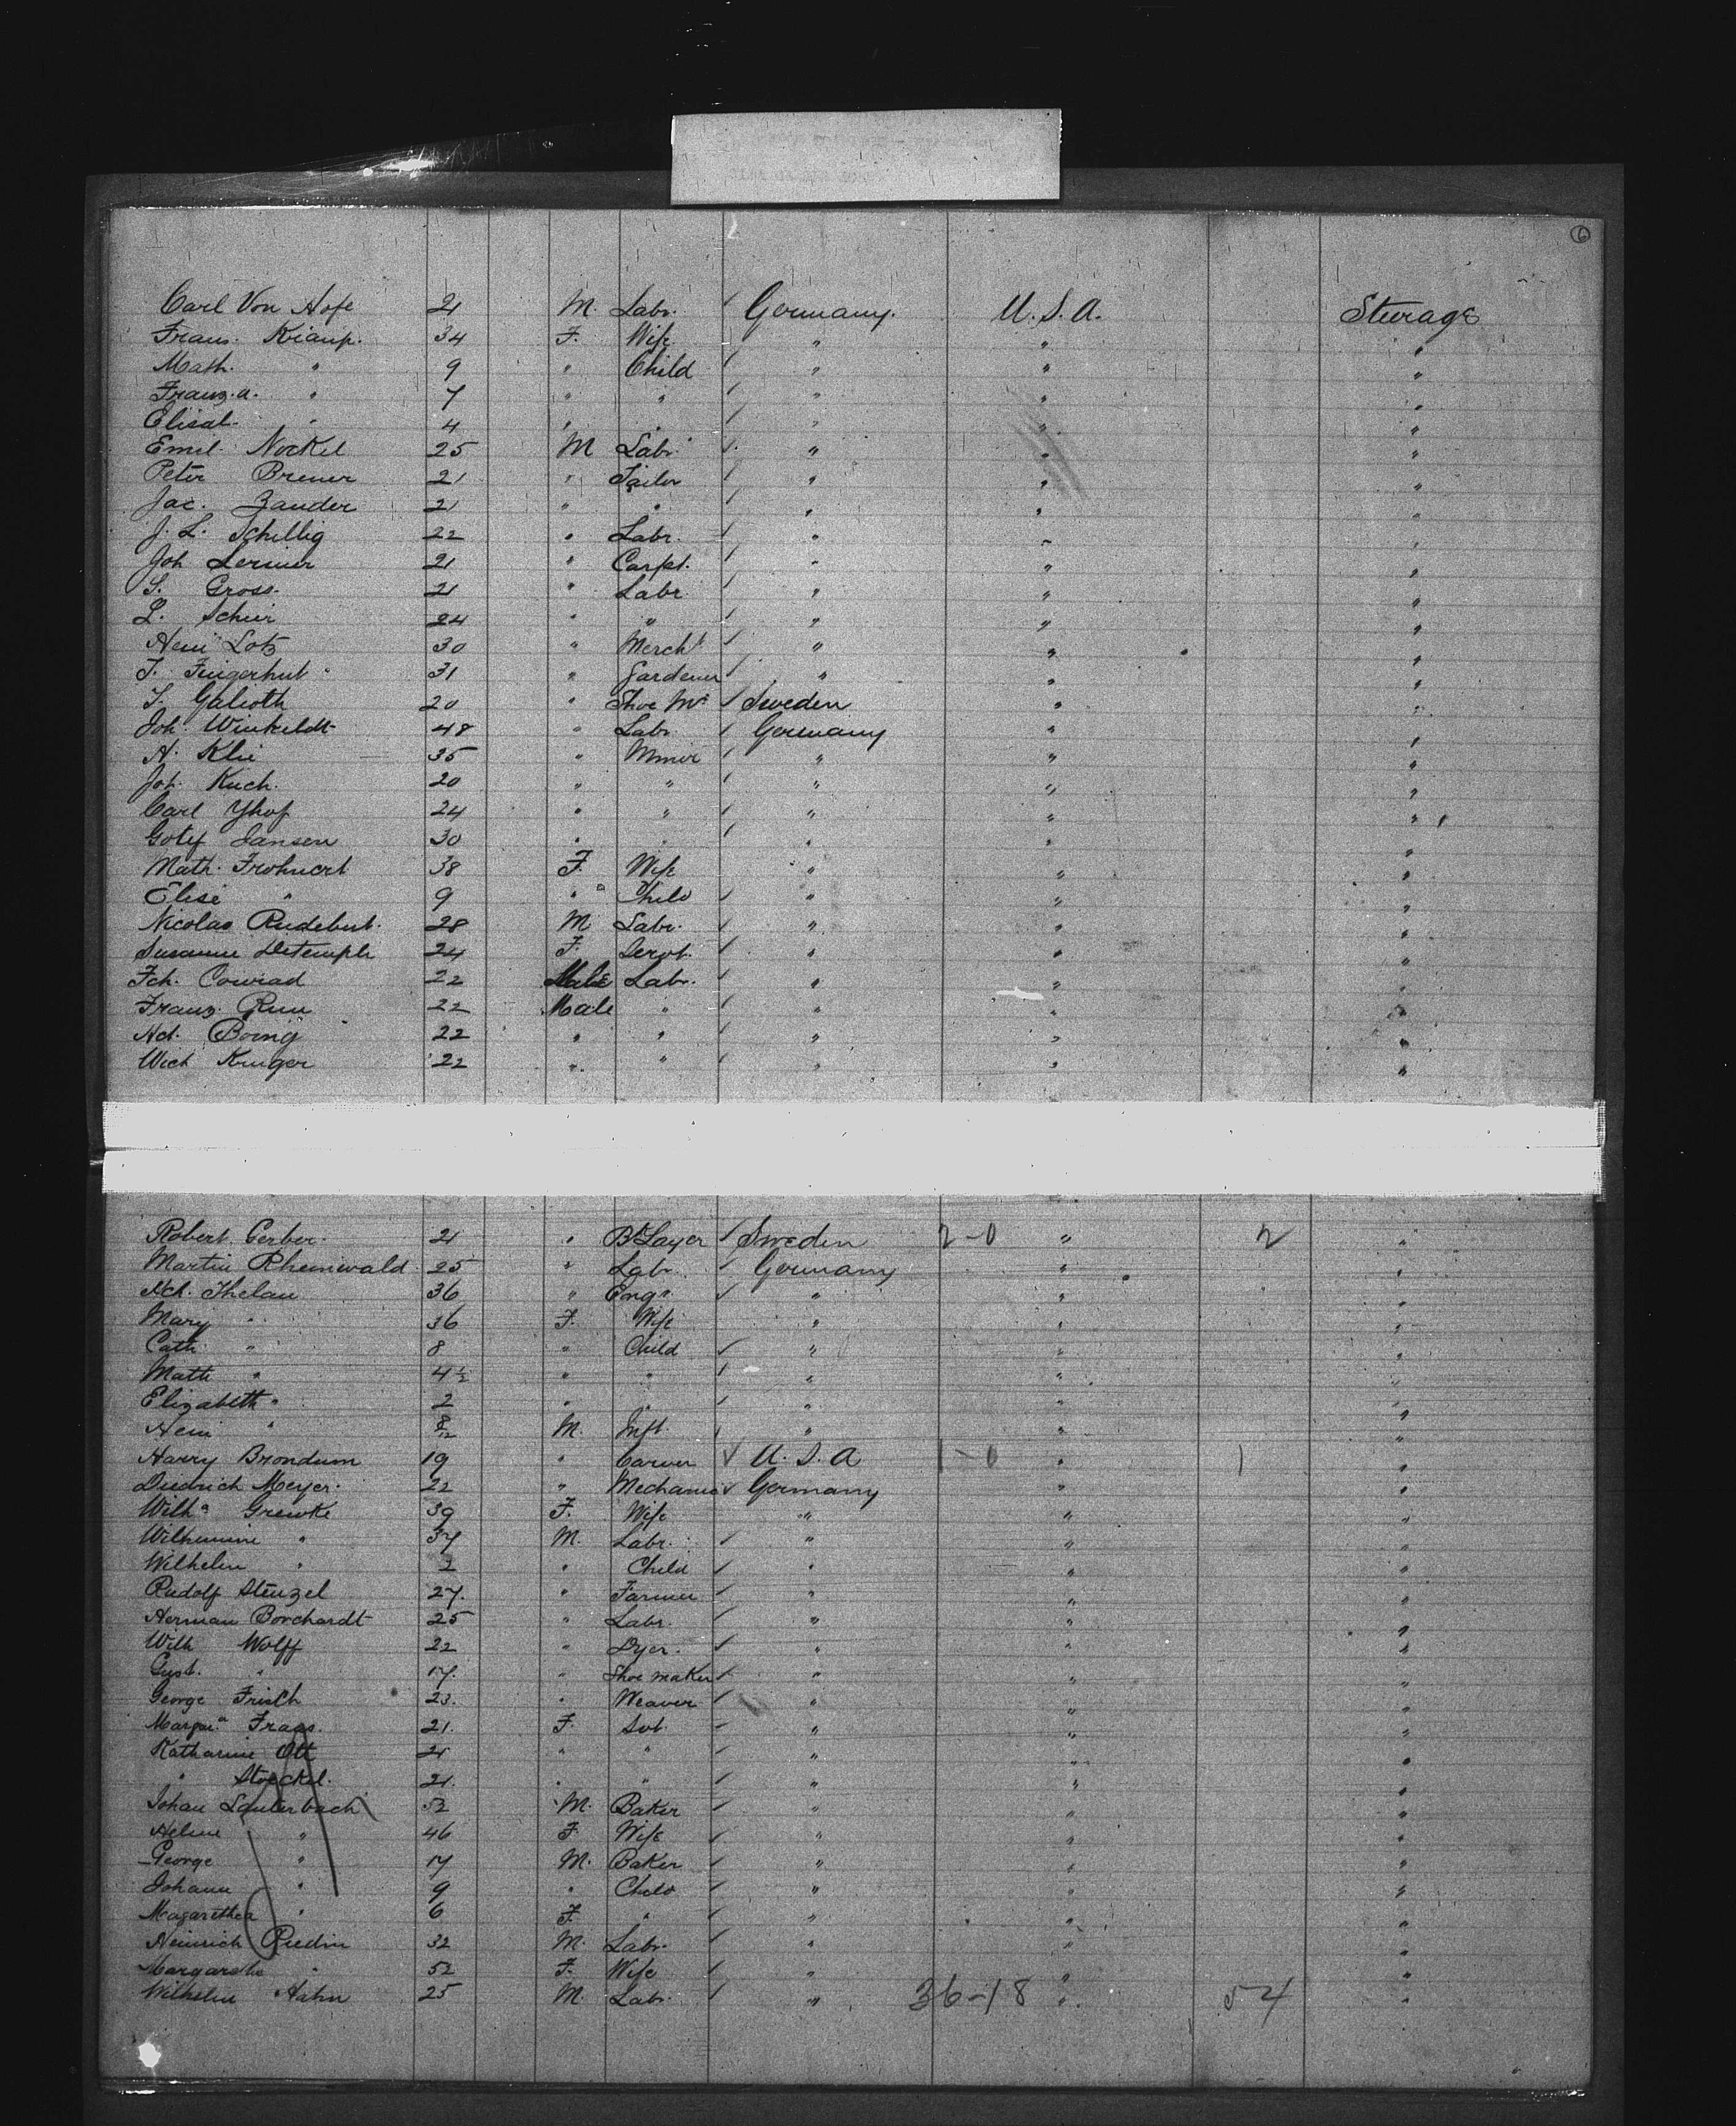 6
Carl Von Hofe 21 M. Labr. Germany. U.S.A. Steerage
Frans. Kramp. 34 F. Wife " " "
Math. " 9 " Child " " "
Franz.a. " 7 " " " " "
Elisab. " 4 " " " " "
Emil Nockel 25 M Labr " " "
Peter Brener 21 " Tailor " " "
Jac. Zander 21 " " " " "
J. L. Schillig 22 " Labr. " " "
Joh 21 " Carpt. " " "
S. Gross 21 " Labr " " "
L. Scheir 24 " " " " "
Hein Lotz 30 " Mercht " " "
J. Fingerhut 31 " Gardener " " "
J. Galioth 20 " Shoe Mr Sweden " "
Joh. Winkeldt 48 " Labr Germany " "
N. Klie 35 " Miner " " "
Joh. Kuch. 20 " " " " "
Carl Yhof 24 " " " " "
Gotlf Jansen 30 " " " " "
Math. Frohnert 38 F. Wife " " "
Elise " 9 " Child " " "
Nicolas Rudebut. 28 M Labr. " " "
Susanne Detemple 24 F. Servt. " " "
Fch. Conrad 22 Male Labr. " " "
Franz. 22 Male " " " "
Hch. Boing 22 " " " " "
Wich Kruger 22 " " " " "
Robert Gerber 21 " Bk Layer Sweden 2-0 " 2 "
Martin Rheinwald 25 " Labr. Germany " "
Hch. Thelan 36 " Engr. " " "
Mary " 36 F. Wife " " "
Cath " 8 " Child " " "
Math " 4½ " " " " "
Elizabeth " 2 " " " " "
Hein " 8/12 M. Inft. " " "
Harry Brondum 19 " Carver U.S.A 1-0 " 1 "
Diedrich Meyer. 22 " Mechanic Germany " "
Wilha Grewke 39 F. Wife " " "
Wilhemine " 37 M. Labr. " " "
Wilhelm " 2 " Child " " "
Rudolf Stenzel 27. " Farmer " " "
Herman Borchardt 25 " Labr. " " "
Wilh Wolff 22 " Dyer. " " "
Gust. " 17. " Shoe maker " " "
George Frisch 23. " Weaver " " "
Margar.a Fraas. 21. F. Svt. " " "
Katharine Ott 21 " " " " "
" Stoeckel. 21. " " " " "
Johan Lauterbach 52 M. Baker " " "
Helene " 46 F. Wife " " "
George " 17 M. Baker " " "
Johann " 9 " Child " " "
Magarethea " 6 F. " " " "
Heinrich Riedin 32 M. Labr. " " "
Margarethe " 52 F. Wife " " "
Wilhelm Hahn 25 M. Labr. " 36-18 " 54 "